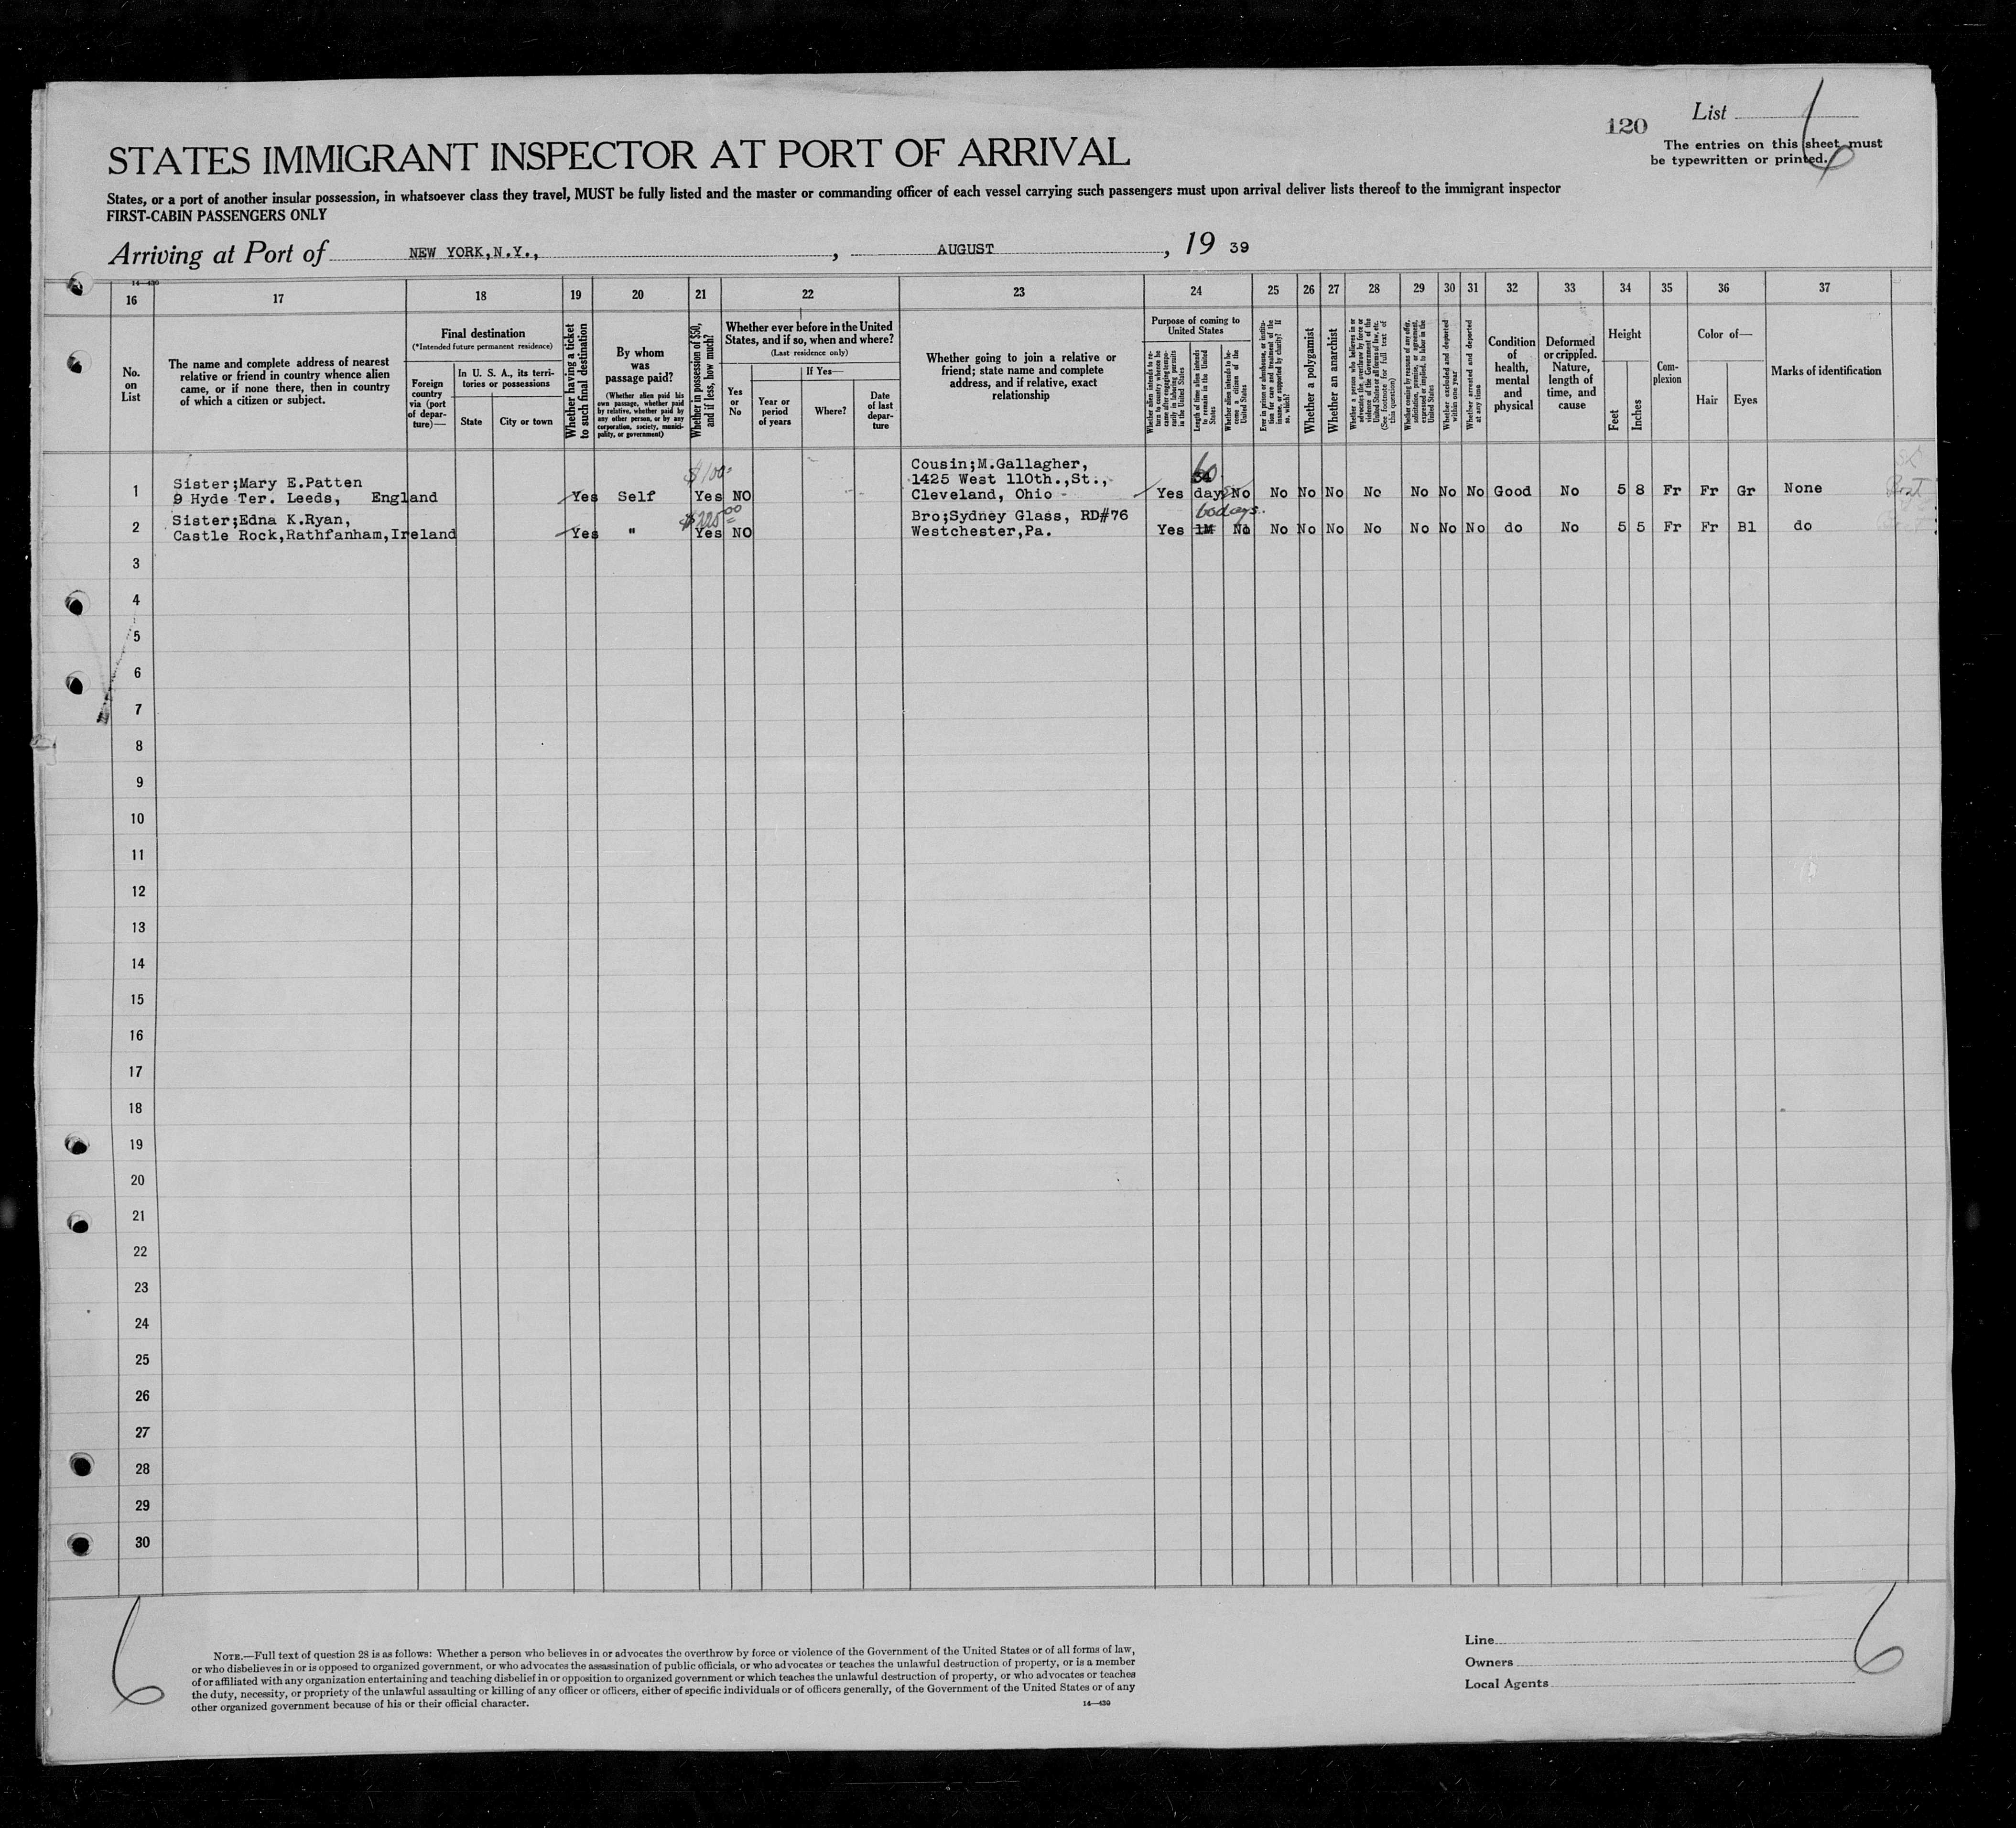 List 6
120
The entries on this sheet must
be typewritten or printed.
STATES IMMIGRANT INSPECTOR AT PORT OF ARRIVAL
States, or a port of another insular possession, in whatsoever class they travel, MUST be fully listed and the master or commanding officer of each vessel carrying such passengers must upon arrival deliver lists thereof to the immigrant inspector
FIRST-CABIN PASSENGERS ONLY
Arriving at Port of NEW YORK,N.Y., , AUGUST , 19 39
14—430
16 17 18 19 20 21 22 23 24 25 26 27 28 29 30 31 32 33 34 35 36 37
No.
on
List
The name and complete address of nearest
relative or friend in country whence alien
came, or if none there, then in country
of which a citizen or subject.
Final destination
(*Intended future permanent residence)
Foreign
country
via (port
of depar-
ture)—
In U. S. A., its terri-
tories or possessions
State
City or town
Whether having a ticket
to such final destination
By whom
was
passage paid?
(Whether alien paid his
own passage, whether paid
by relative, whether paid by
any other person, or by any
corporation, society, munici-
pality, or government)
Whether in possession of $50,
and if less, how much?
Whether ever before in the United
States, and if so, when and where?
(Last residence only)
Yes
or
No
If Yes—
Year or
period
of years
Where?
Date
of last
depar-
ture
Whether going to join a relative or
friend; state name and complete
address, and if relative, exact
relationship
Purpose of coming to
United States
Whether alien intends to re-
turn to country whence he
came after engaging tempo-
rarily in laboring pursuits
in the United States
Length of time alien intends
to remain in the United
States
Whether alien intends to be-
come a citizen of the
United States
Ever in prison or almshouse, or institu-
tion for care and treatment of the
insane, or supported by charity? If
so, which?
Whether a polygamist
Whether an anarchist
Whether a person who believes in or
advocates the overthrow by force or
violence of the Government of the
United States or all forms of law, etc.
(See footnote for full text of
this question)
Whether coming by reasons of any offer,
solicitation, promise, or agreement,
expressed or implied, to labor in the
United States
Whether excluded and deported
within one year
Whether arrested and deported
at any time
Condition
of
health,
mental
and
physical
Deformed
or crippled.
Nature,
length of
time, and
cause
Height
Feet
Inches
Com-
plexion
Color of—
Hair
Eyes
Marks of identification
$100
60
Cousin;M.Gallagher,
Sister;Mary E.Patten 1425 West 110th.,St.,
1 9 Hyde Ter. Leeds, England Yes Self Yes NO Cleveland, Ohio Yes days No No No No No No No No Good No 5 8 Fr Fr Gr None
$225.00
60 days.
Sister;Edna K.Ryan, Bro;Sydney Glass, RD#76
2 Castle Rock,Rathfanham,Ireland Yes " Yes NO Westchester,Pa. Yes 1M No No No No No No No No do No 5 5 Fr Fr Bl do
3
4
5
6
7
8
9
10
11
12
13
14
15
16
17
18
19
20
21
22
23
24
25
26
27
28
29
30
6
6
NOTE.—Full text of question 28 is as follows: Whether a person who believes in or advocates the overthrow by force or violence of the Government of the United States or of all forms of law,
or who disbelieves in or is opposed to organized government, or who advocates the assassination of public officials, or who advocates or teaches the unlawful destruction of property, or is a member
of or affiliated with any organization entertaining and teaching disbelief in or opposition to organized government or which teaches the unlawful destruction of property, or who advocates or teaches
the duty, necessity, or propriety of the unlawful assaulting or killing of any officer or officers, either of specific individuals or of officers generally, of the Government of the United States or of any
other organized government because of his or their official character.
14—430
Line
Owners
Local Agents